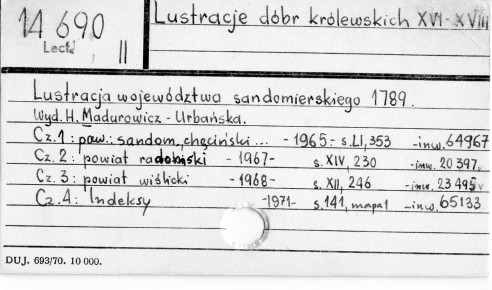 14 690
Lectr
II
Lustracje dóbr królewskich XVI-XVIII
Lustracja województwa sandomierskiego 1789.
Wyd. H. Madurowicz-Urbańska.
Cz.1: pow.: sandom., chęciński... -1965- s. LI, 353 -inw. 64967
Cz.2: powiat radomski -1967- s. XIV, 230 -inw. 20 397
Cz.3: powiat wiślicki -1968- s. XII, 246 -inw. 23 495
Cz.4: Indeksy -1971- s. 141, mapa 1 -inw. 65133
DUJ. 693/70. 10 000.